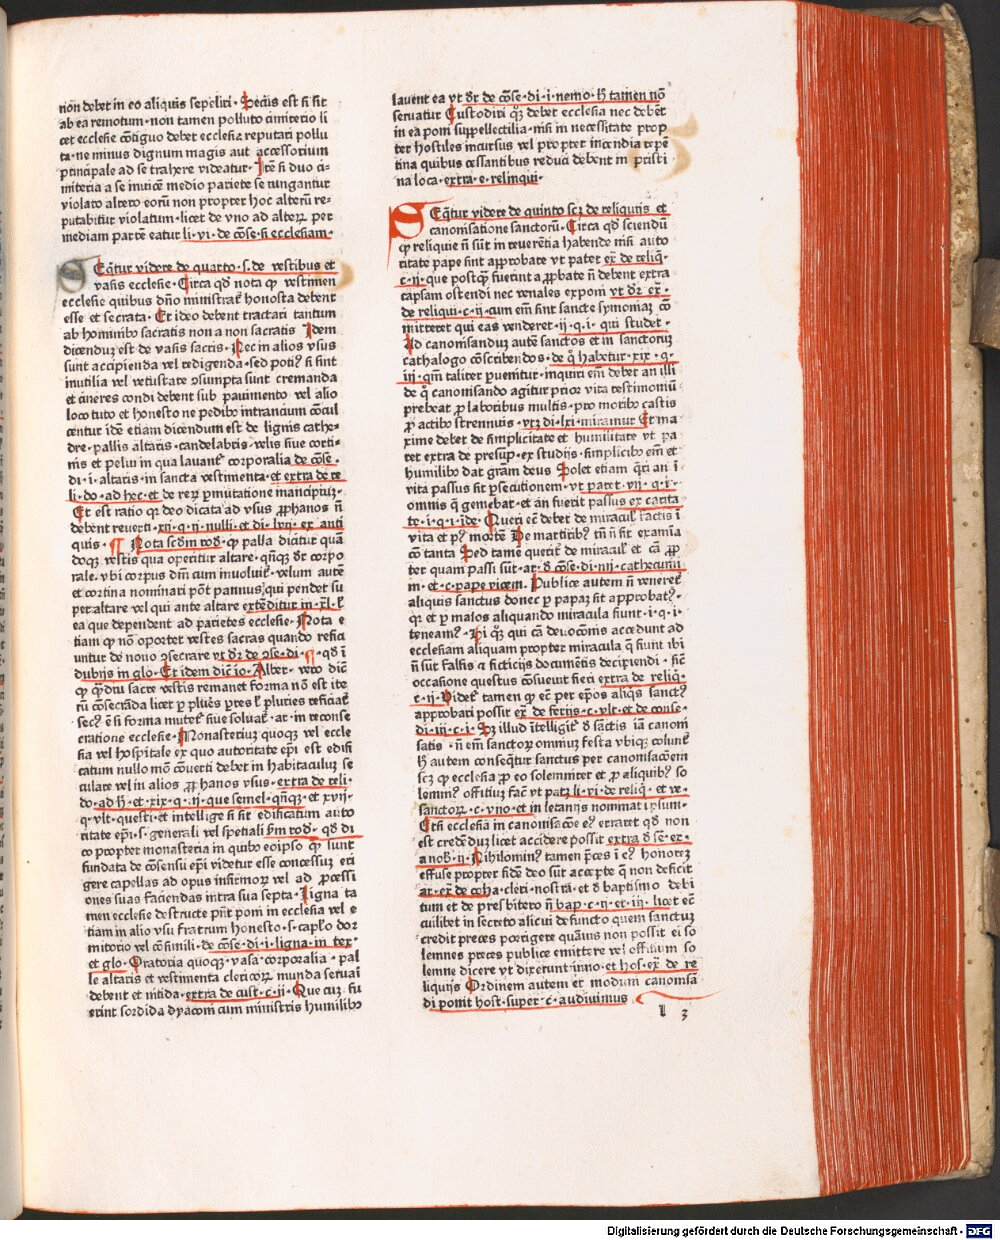 non debet in eo aliquis sepeliri· Secus est si sit
ab ea remotum· non tamen polluto cimiterio li
cet ecclesie cōtiguo debet ecclesia reputari pollu
ta· ne minus dignum magis aut accessorium
principale ad se trahere videatur· Itē si duo ci-
miteria a se inuicē medio pariete se iungantur
violato altero eorū non propter hoc alterū re-
putabitur violatum· licet de vno ad alterꝝ per
mediam partē eatur li· vi· de cōse· si ecclesiam·
Seq̄tur videre de quarto· s· de vestibus et
vasis ecclesie· Circa qd nota ꝙ vestimen
ecclesie quibus dn̄o ministrat̄ honesta debent
esse et secrata· Et ideo debent tractari tantum
ab hominibꝰ sacratis non a non sacratis Idem
dicenduꝫ est de vasis sacris· Nec in alios vsus
sunt accipienda vel redigenda· sed potiꝰ si sint
inutilia vel vetustate ↄsumpta sunt cremanda
et cineres condi debent sub pauimento vel alio
loco tuto et honesto ne pedibꝰ intrancium cōcul
centur idē etiam dicendum est de lignis cathe-
dre· pallis altaris· candelabris· velis siue corti-
nis et peluiu in qua lauant̄ corporalia de cōse·
di· i· altaris· in sancta vestimenta· et extra de re
li· do· ad hec· et de reꝝ ꝑmutatione mancipiuꝫ·
Et est ratio qꝛ deo dicata ad vsus ꝓphanos n̄
debent reuerti· xii· q· ii· nulli· et di· lvii· ex anti
quis· ¶ Nota scdm rod· ꝙ palla dicitur quā
doqꝫ vestis qua operitur altare· qn̄qꝫ dr̄ corpo
rale· vbi corpus dm̄ cum inuoluit̄· velum autē
et cortina nominari pōt pannus qui pendet su
per altare vel qui ante altare extēditur in· xl· ł
ea que dependent ad parietes ecclesie· Nota e
tiam ꝙ nō oportet vestes sacras quando refici
untur de nouo ↄsecrare vt dꝛ de ↄse· di· ¶· qd ī
dubijs in glo· Et idem dicit io· Alber· vero dic̄
ꝙ q̄diu sacre vestis remanet forma nō est ite
rū cōsecrāda licet ꝑ pluēs ꝑtes ł pluries reficiat̄
secꝰ ē si forma mutet̄ siue soluat̄· ar· in reconse
cratione ecclesie· Monasteriuꝫ quoqꝫ vel eccle
sia vel hospitale ex quo autoritate ep̄i est edifi
catum nullo mō cōuerti debet in habitaculuꝫ se
culare vel in alios ꝓphanos vsus· extra de reli·
do· ad h̄· et· xix· q· iij· que semel· qn̄qꝫ· et xvij·
q· vlt· questi· et intellige si sit edificatum auto
ritate ep̄i· s· generali vel spetiali scdm rod· qd di
co propter monasteria in quibꝰ eoipso ꝙ sunt
fundata de cōsensu ep̄i videtur esse concessuꝫ eri
gere capellas ad opus infirmoꝝ vel ad ꝓcessi
ones suas faciendas intra sua septa· Ligna ta
men ecclesie destructe pn̄t poni in ecclesia vel e
tiam in alio vsu fratrum honesto· s· capl'o dor
mitorio vel cōsimili· de cōse· di· i· ligna· in tex·
et glo· Oratoria quoqꝫ· vasa· corporalia· pal
le altaris et vestimenta clericoꝝ munda seruari
debent et nitida· extra de cust· c· ii· Que cuꝫ fu
erint sordida dyaconi cum ministris humilibꝰ
lauent ea vt dr̄ de cōse· di· i· nemo· h̄ tamen nō
seruatur Custodiri qꝫ debet ecclesia nec debēt
in ea poni suppellectilia· nisi in necessitate prop
ter hostiles incursus vel propter incendia repē
tina quibus cessantibus reduci debent in pristi
na loca· extra· e· relinqui·
Seq̄tur videre de quinto scꝫ de reliquijs et
canonisatione sanctorū· Circa qd sciendū
ꝙ reliquie n̄ sūt in reuerētia habende nisi auto
ritate pape sint approbate vt patet ex̄ de reliq̄·
c· ii· que postq̄ fuerint approbate n̄ debent extra
capsam ostendi nec venales exponi vt dꝛ ex̄·
de reliqui· c· ii· cum em̄ sint sancte symoniaꝫ cō
mitteret qui eas venderet· ij· q· i· qui studet·
Ad canonisanduꝫ autē sanctos et in sanctoruꝫ
cathalogo cōscribendos· de q̄ habetur· xix· q·
iij· qm̄ taliter peruenitur· inquiri em̄ debet an illi
de q̄ canonisando agitur prior vita testimoniū
prebeat ꝓ laboribus multis· pro moribꝰ castis
ꝓ actibꝰ strennuis· vtꝫ di· lxi· miramur Et ma
xime debet de simplicitate et humilitate vt pa
tet extra de presup· ex studijs· simplicibꝰ em̄ et
humilibꝰ dat grām deus Solet etiam q̄ri an ī
vita passus sit ꝑsecutionem· vt patet· vij· q· i·
omnis q̄ gemebat· et an fuerit passus ex carita
te· i· q· i· ide· Queri eī debet de miracul̄ factis ī
vita et pꝰ mortē De martiribꝰ tn̄ n̄ fit examīa
cō tanta Sed tamē querit̄ de miracul̄ et cā ꝓp
ter quam passi sūt· ar· d cōse· di· iiij· cathecumi
ni· et· c· pape vicem· Publice autem n̄ veneret̄
aliquis sanctus donec ꝑ papaꝫ sit approbatꝰ·
qꝛ et ꝑ malos aliquando miracula fiunt· i· q· i·
teneamꝰ· Hi qꝫ qui cā deuocōnis accedunt ad
ecclesiam aliquam propter miracula q̄ fiunt ibi
n̄ sūt falsis et ficticijs documētis decipiendi· sic̄
occasione questus cōsueuit fieri extra de reliq̄·
c· ij· Videt̄ tamen ꝙ eī per ep̄os aliq̄s sanctꝰ
approbari possit ex̄ de ferijs· c· vlt· et de conse·
di· iij· c· i· Sꝫ illud ītelligit̄ d̄ sanctis iā canoni
satis· n̄ em̄ sanctoꝝ omniuꝫ festa vbiqꝫ colunt̄
h̄ autem conseq̄tur sanctus per canonisacōem
scꝫ ꝙ ecclesia ꝓ eo solemniter et ꝓ aliquibꝰ so
lemniꝰ offitiuꝫ fac̄ vt patꝫ li· vi· de reliq̄· et ve·
sanctoꝝ· c· vno· et in letanijs nominat ipsum·
Etsi ecclesia in canonisacōne eꝰ erraret qd non
est credēduꝫ licet accidere possit extra d̄ sē· ex·
a nob· ij· Nihilominꝰ tamen p̄ces ī eꝰ honorē
effuse propter fidē deo sūt accepte q̄ non deficit
ar· ex̄ de coha· cleri· nostrā· et d̄ baptismo debi
tum et de presbitero n̄ bap· c· ii· et· iij· licet eī
cuilibet in secreto alicui defuncto quem sanctuꝫ
credit preces porrigere quāuis non possit ei so
lemnes preces publice emittere vel offitium so
lemne dicere vt dixerunt inno· et hos· ex̄ de re
liquijs Ordinem autem et modum canonisā
di ponit host· super· c· audiuimus
l 3
Digitalisierung gefördert durch die Deutsche Forschungsgemeinschaft · DFG